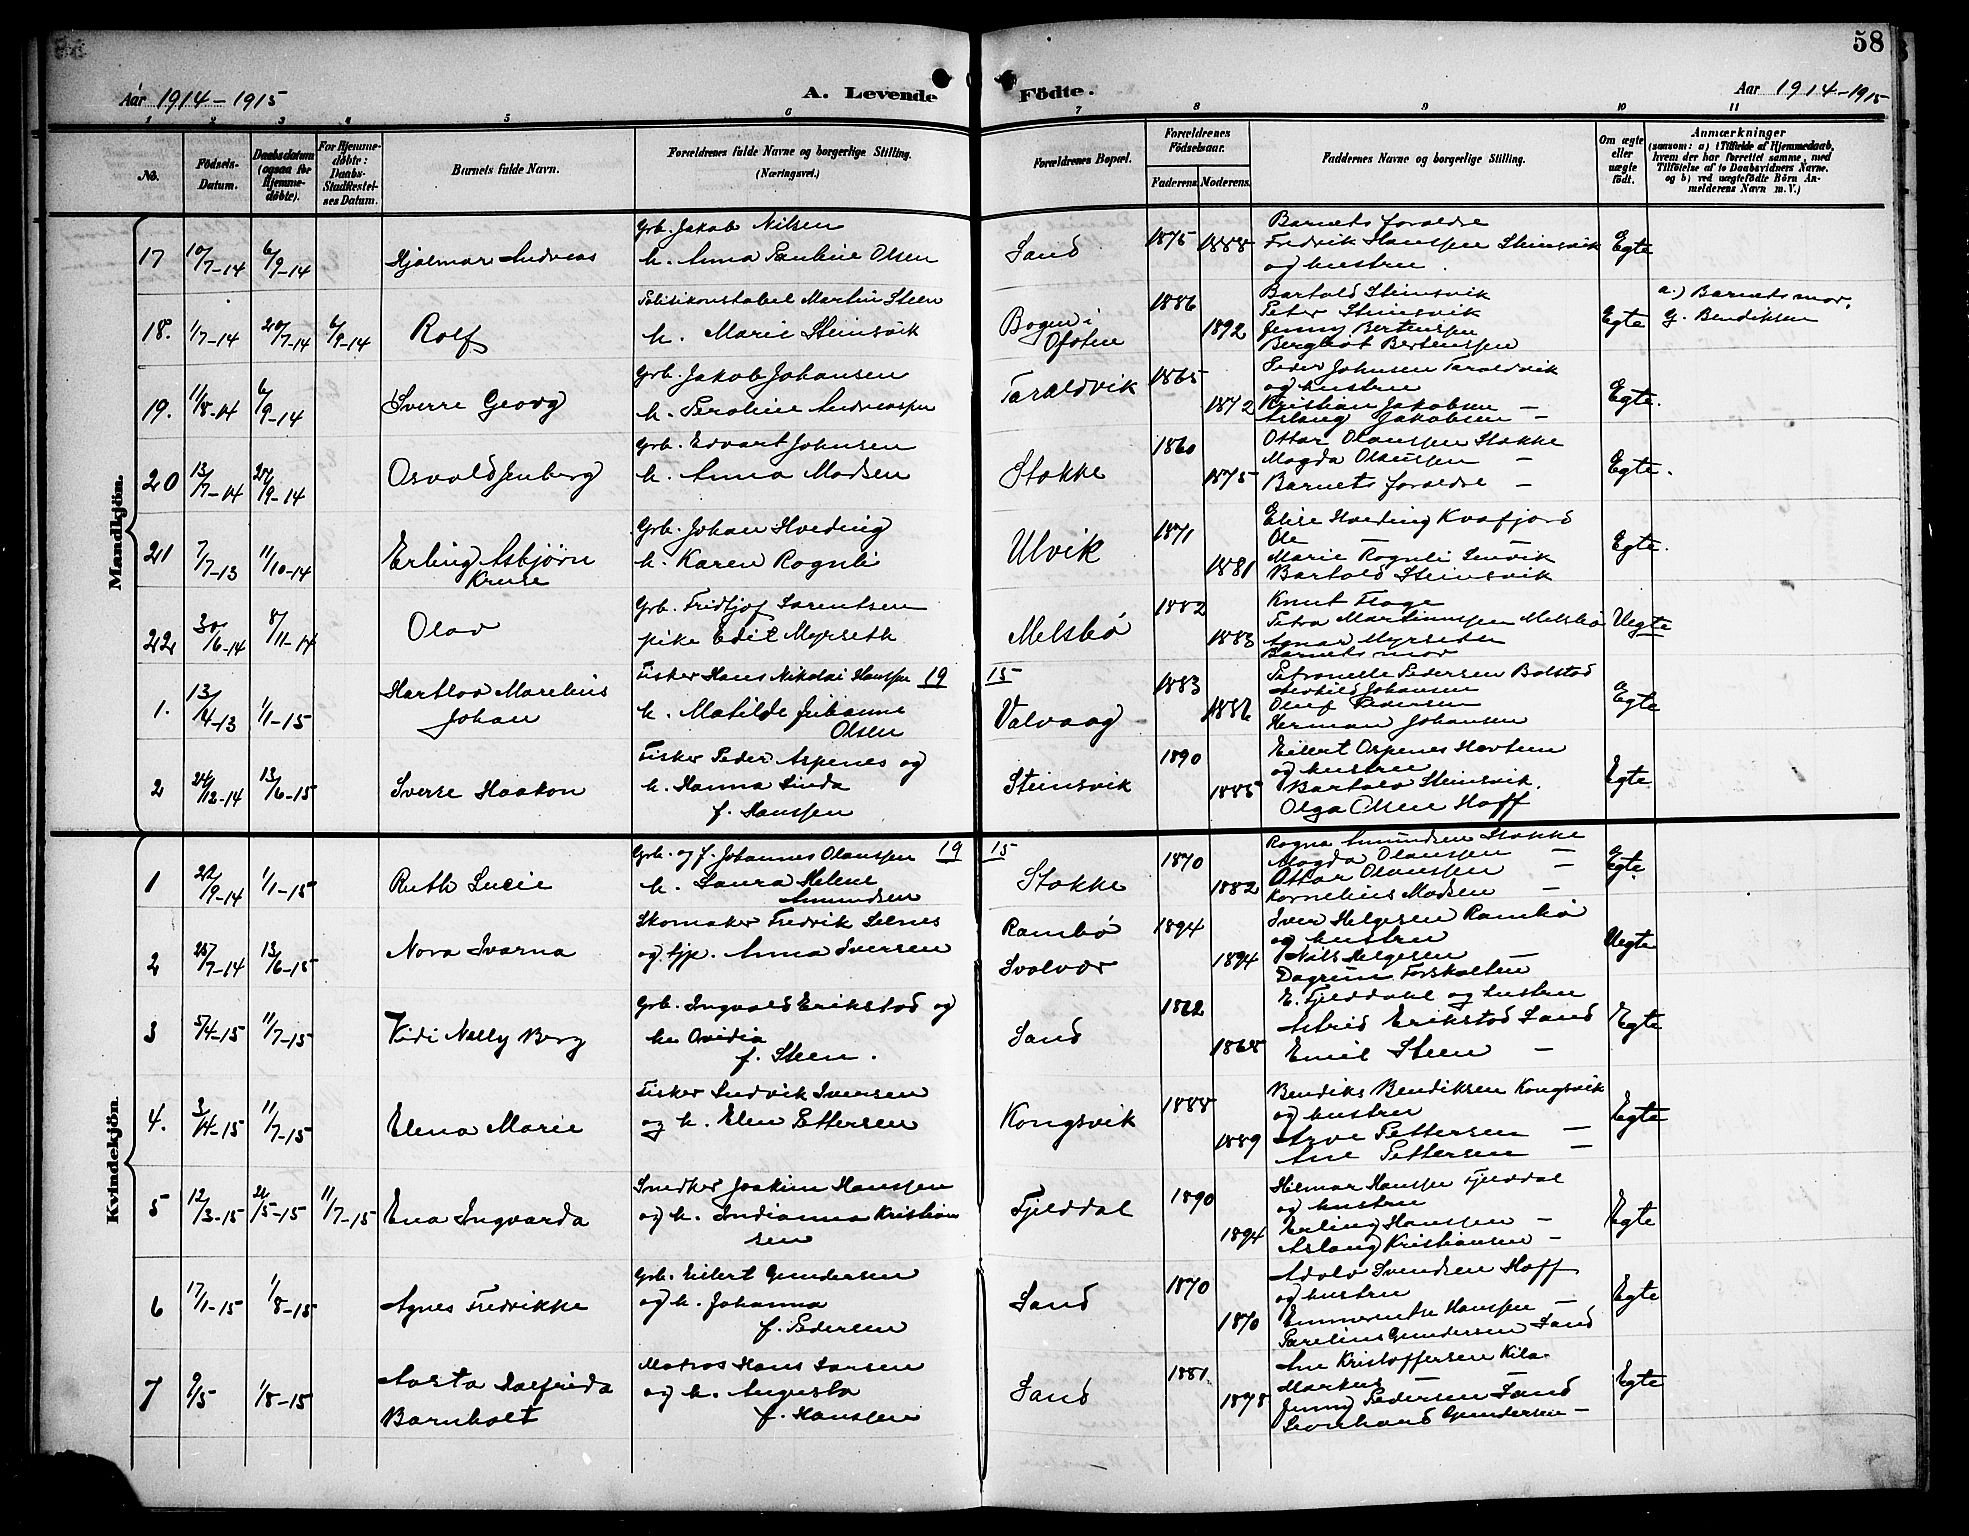 58
Aar 1914-1915 A. Levende Födte. Aar 1914-1915
1 2 3 4 5 6 7 8 9 10 11
No.
Födsels-Datum.
Daabsdatum (ogsaa for Hjemmedøbte).
For Hjemmedøbte: Daabs-Stadfæstelses Datum.
Barnets fulde Navn.
Forældrenes fulde Navne og borgerlige Stilling. (Næringsvei.)
Forældrenes Bopæl.
Forældrenes Födselsaar.
Faderens. Moderens.
Faddernes Navne og borgerlige Stilling.
Om ægte eller uægte födt.
Anmærkninger
(saasom: a) i Tilfælde af Hjemmedaab, hvem der har forrettet samme, med Tilføielse af to Daabsvidners Navne. og b) ved uægtefödte Börn Anmelderens Navn m.V.)
Mandkjön.
17 10/7-14 6/9-14 Hjalmar Andreas
Grb. Jakob Nilsen
h. Anna Pauline Olsen
Sand 1875 1888
Barnets forældre
Fredrik Hanssen Steinsvik
og hustru.
Egte
18. 1/7-14 20/7-14 6/9-14 Rolf
Politikonstabel Martin Steen
h. Marie Steinsvik
Bogen i
Ofoten
1886 1892
Bartold Steinsvik
Peter Steinsvik
Jenny Bertenssen
Bergliot Bertenssen
Egte
a.) Barnets mor,
G. Bendiksen
19. 11/8-14 6/9-14 Sverre Georg
Grb. Jakob Johansen
h. Seroline Andreassen
Taraldvik 1865 1872
Peder Johnsen Taraldvik
og hustru
Kristian Jakobsen -
Aslaug Jakobsen -
Egte.
20 13/7-14 20/9-14 Osvald Jenberg
Grb. Edvart Johnsen
h. Anna Madsen
Stokke 1860 1875
Ottar Olaussen Stokke
Magda Olaussen -
Barnets forældre -
Egte.
21 7/7-13 11/10-14 Erling Asbjørn
Kruse
Grb. Johan Hveding
h. Karen Rognli
Ulvik 1871 1881
Elise Hveding Kvæfjord
Ole -
Marie Rognli
Bartold Steinsvik
Egte.
22 30/6-14 8/11-14 Olav
Grb. Fridtjof Sørentsen
pike Edit Myrseth
Melsbø 1882 1883
Knut Flage
Petra Martinussen Melsbø
Agnar Myrseter
Barnets mor
Uegte
1. 13/4-13 1/1-15 Hartlov Marelius
Johan
Fisker Hans Nikolai Hanssen 19 15
h. Matilde Julianne
Olsen
Valvaag 1883 1886
Petronelle Pedersen Bolstad
Johansen
Oluf Pedersen
Herman Johansen
Egte
2 24/12-14 13/6-15 Sverre Haakon
Fisker Peder Aspenes og
h. Hanna Linda
f. Hanssen
Steinsvik 1890 1885
Eilert Aspenes Hovtun
og hustru
Bartolo Steinsvik.
Olga Olsen Hoff
Egte
Kvindekjön.
1 22/9-14 1/1-15 Ruth Lucie
Grb. og f. Johannes Olaussen 19 15
h. Laura Helene
Amundsen
Stokke 1870 1882
Ragna Amundsen Stokke
Magda Olaussen -
Ottar Olaussen -
Kornelius Madsen -
Egte.
2 25/7-14 13/6-15 Nora Ivarna
Skomaker Fredrik Selnes
og tjp. Anna Iversen
Rambø
Svolvær
1894 1894
Iver Helgesen Rambø
og hustru
Nils Helgesen -
Dagrun Forshalten
Uegte
3 5/4-15 11/7-15 Vidi Nelly Berg
Grb. Ingvald Erikstad og
h. Ovidia
f. Steen.
Sand 1862 1868
E. Fjelddahl og hustru
Astrid Erikstad Sand
Emil Steen -
Egte
4. 3/4-15 11/7-15 Elena Marie
Fisker Ludvik Iversen
og h. Elen Pettersen
Kongsvik 1888 1889
Bendiks Bendiksen Kongsvik
og hustru
Arve Pettersen -
Ane Pettersen -
Egte
5 12/3-15 21/5-15 11/7-15 Ena Ingvarda
Snedker Joakim Hanssen
og h. Indianna Kristian
sen
Fjelddal 1890 1894
Hilmar Hanssen Fjelddal
og hustru
Erling Hanssen -
Aslaug Kristiansen -
Egte
6 17/1-15 1/8-15 Agnes Fredrikke
Grb. Eilert Gundersen
og h. Johanna
f. Pedersen
Sand 1870 1870
Adolv Svendsen Hoff
og hustru
Emmerentse Hanssen -
Parelius Gundersen Sand
Egte
7 9/5 1/8-15 Aasta Dalfrida
Barnholt
Matros Hans Larsen
og h. Augusta
f. Hanssen
Sand 1881 1878
Ane Kristoffersen Kila
Markus -
Jenny Pedersen Sand
Leonhard Gundersen -
Egte